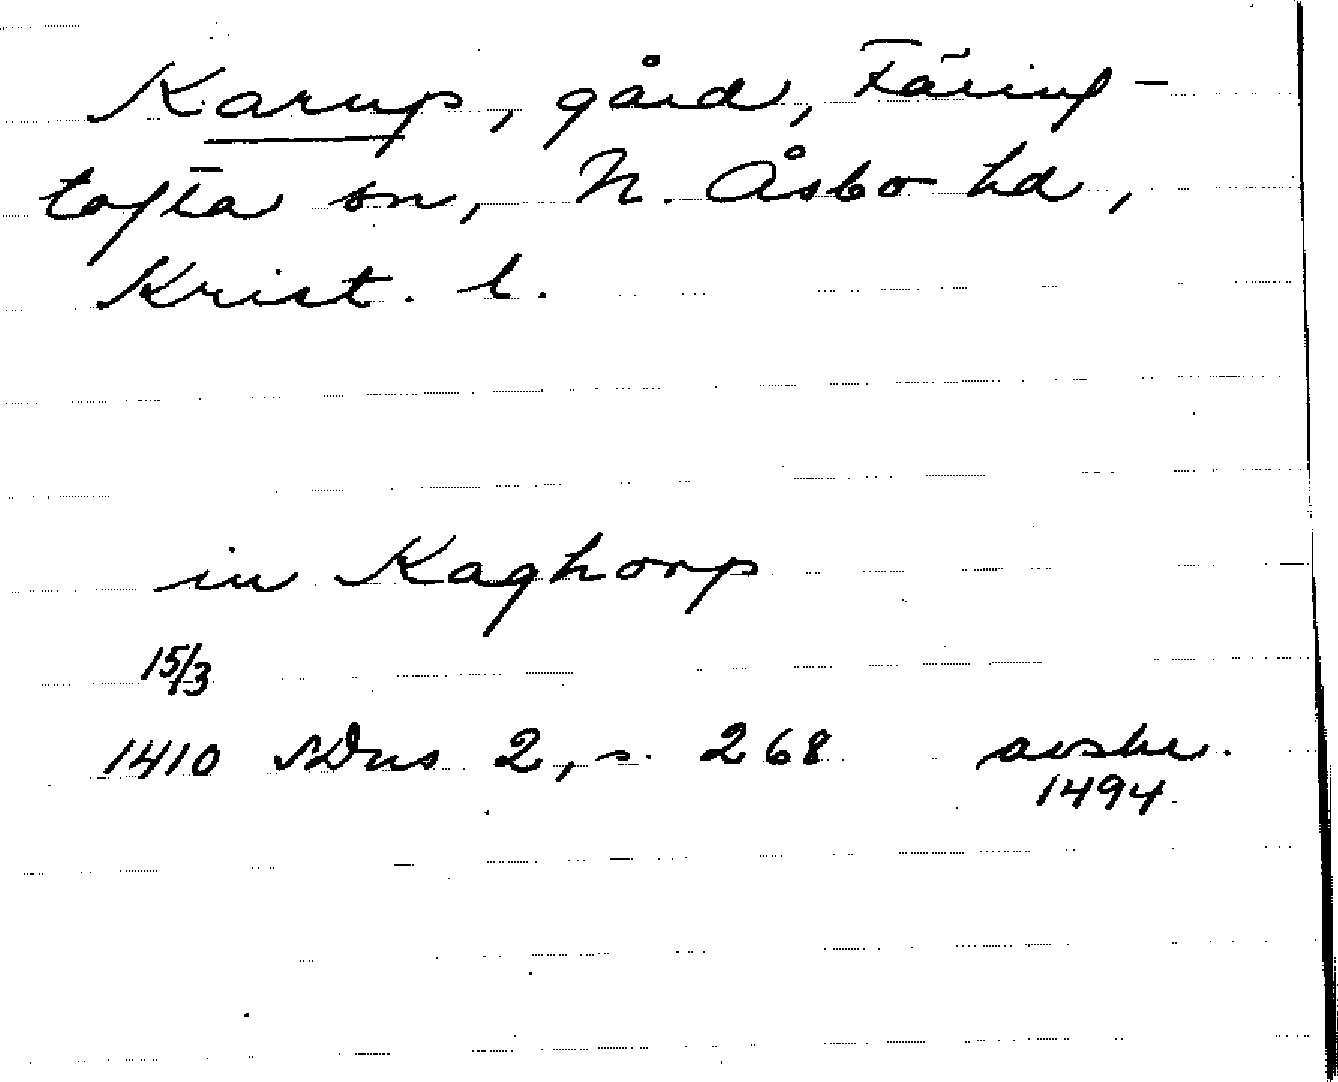 Karup, gård, Färing-
tofta sn, N. Åsbo hd,
Krist. l.
in Kaghorp
15/3
1410 SDns 2, s. 268 avskr.
1494